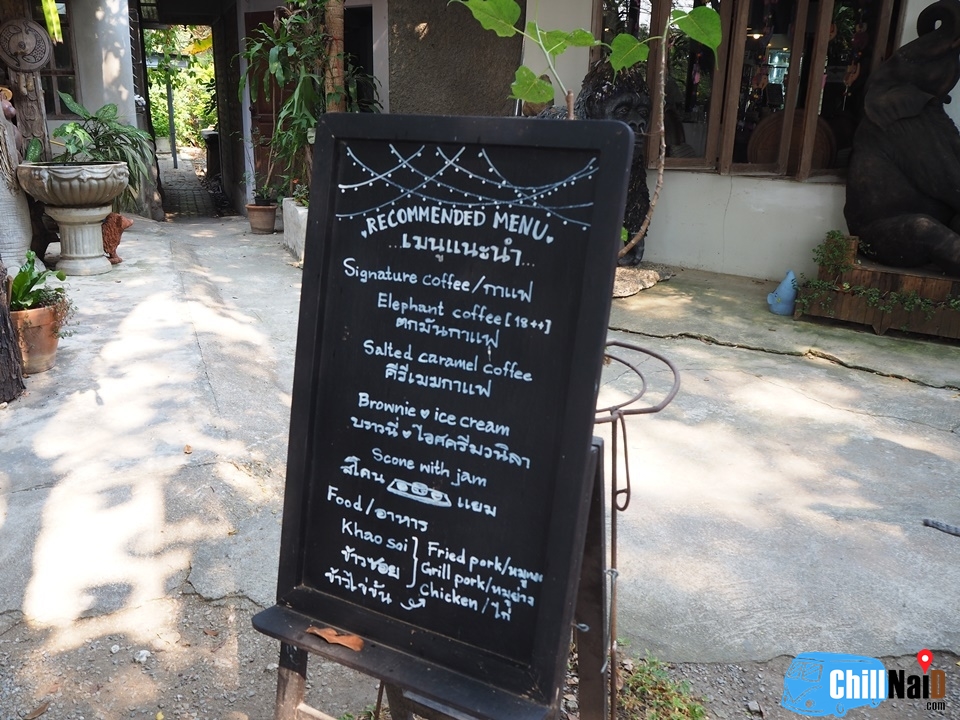 RECOMMENDED MENU
...เมนูแนะนำ...
Signature coffee/กาแฟ
Elephant coffee [18++]
ตกมันกาแฟ
Salted caramel coffee
คีรีเมมกาแฟ
Brownie ♥ ice cream
บราวนี่ ♥ ไอศครีมวนิลา
Scone with jam
สโคน แยม
Food/อาหาร
Khao soi
ข้าวซอย
ข้าวไข่ข้น
Fried pork/หมูทอด
Grill pork/หมูย่าง
Chicken/ไก่
ChillNaiD
.com